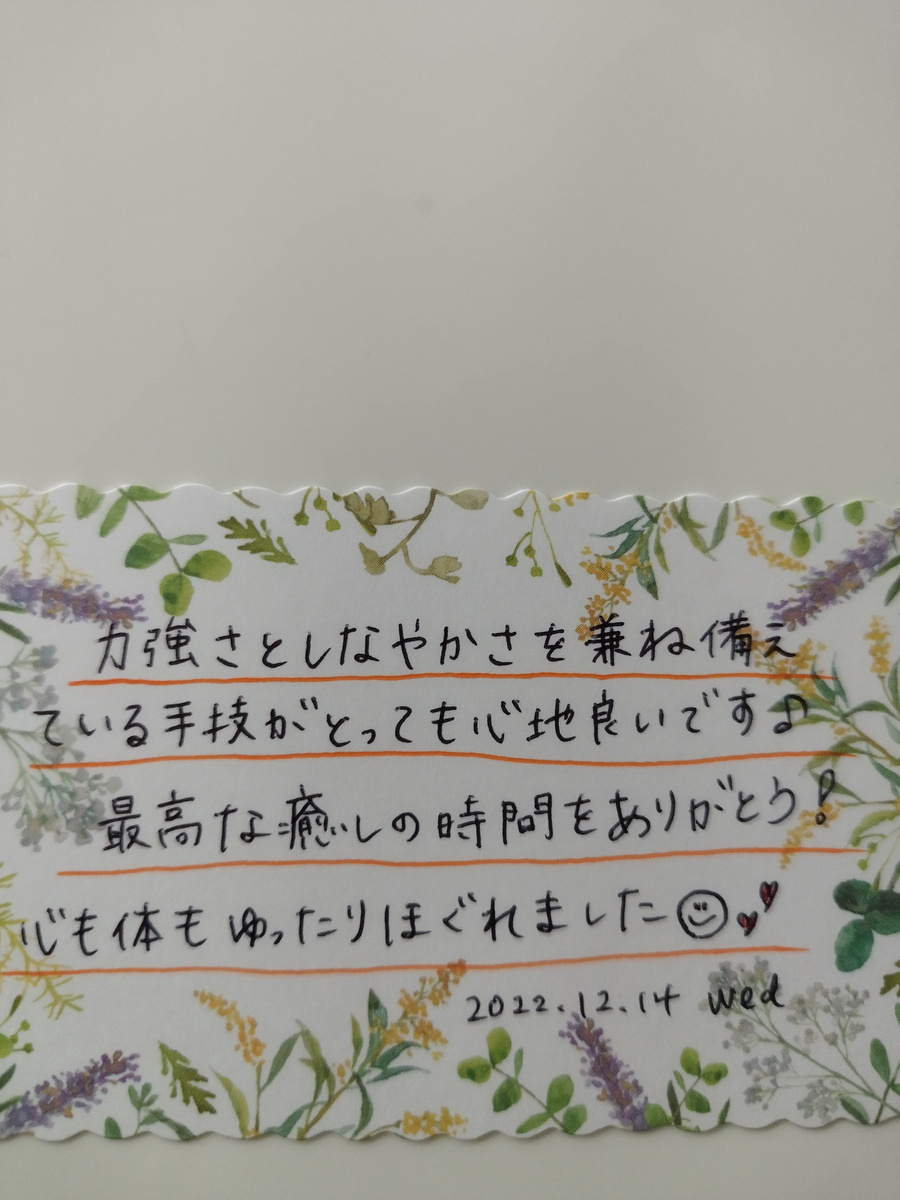 力強さとしなやかさを兼ね備え
ている手技がとっても心地良いです♪
最高な癒しの時間をありがとう!
心も体もゆったりほぐれました
2022.12.14 wed